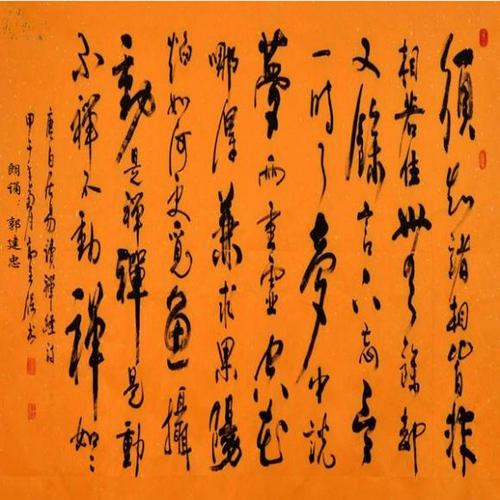 須知諸相皆非
相若住無餘却
有餘言下忘言
一時了夢中說
夢兩重虛空花
哪得兼求果陽
焰如何更覓魚攝
動是禪禪是動
不禪不動禪如々
唐白居易讀禪經詩
甲午 書
朗诵：郭建忠